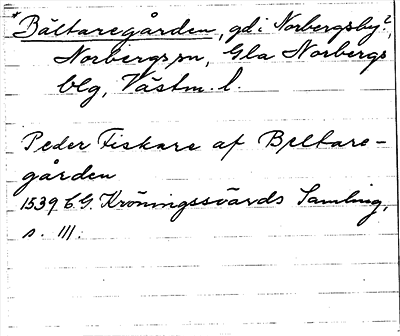 *Bältaregården, gd i Norbergsby?,
Norbergs sn, Gla Norbergs
blg, Västm. l.
Peder Fiskare af Beltare-
gården
1539 C.G. Kröningssvärds Samling,
s. 111.